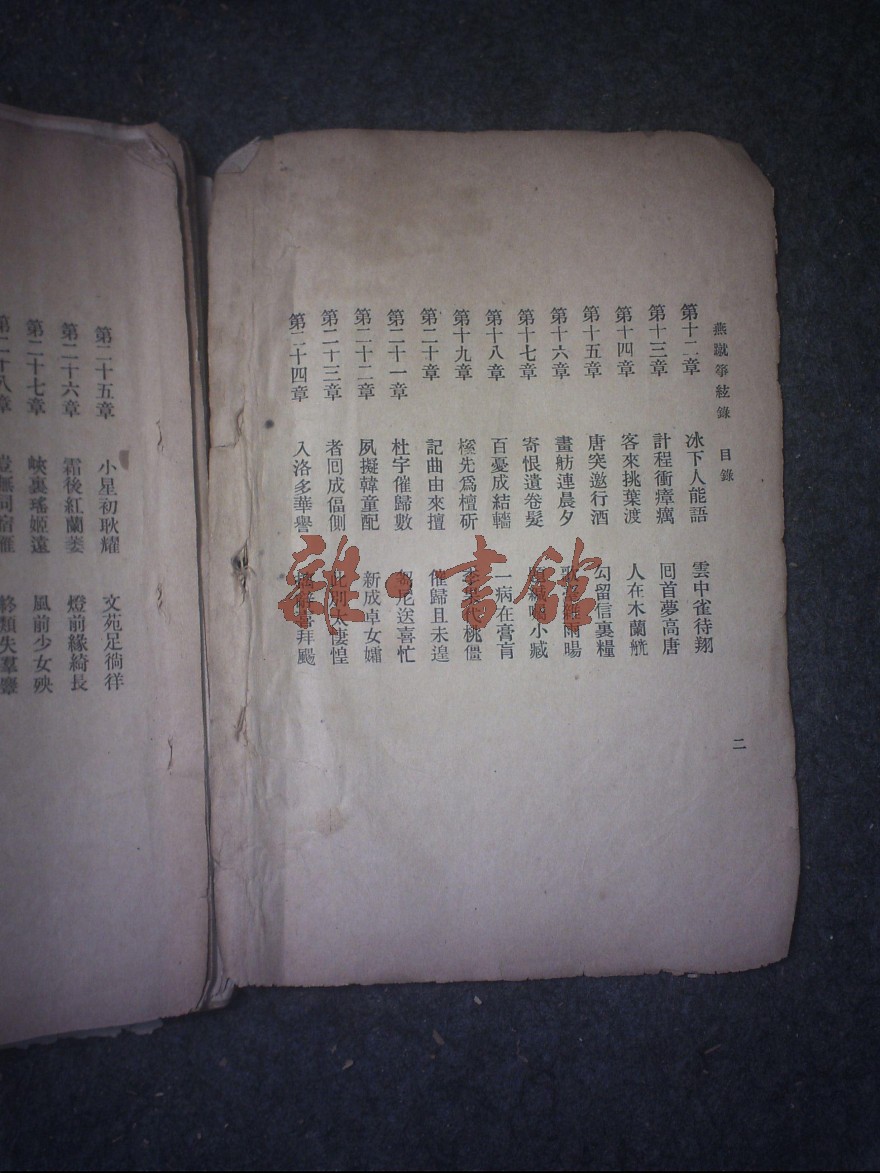 燕蹴箏絃錄 目錄
第十二章 冰下人能語 雲中雀待翔
第十三章 計程衝瘴癘 囘首夢高唐
第十四章 客來挑葉渡 人在木蘭艭
第十五章 唐突邀行酒 勾留信裏糧
第十六章 畫舫連晨夕 歌 雨暘
第十七章 寄恨遺卷髮 小臧
第十八章 百憂成結轖 一病在膏肓
第十九章 先爲檀斫 代桃僵
第二十章 記曲由來擅 催歸且未遑
第二十一章 杜宇催歸數 尾送喜忙
第二十二章 夙擬韓童配 新成卓女孀
第二十三章 者囘成偪側 此別太悽惶
第二十四章 入洛多華譽 拜颺
二
第二十五章 小星初耿耀 文苑足徜徉
第二十六章 霜後紅蘭萎 燈前緣綺長
第二十七章 峽裏瑤姬遠 風前少女殃
第二十八章 無同宿雁 終類失羣麞
雜·書館